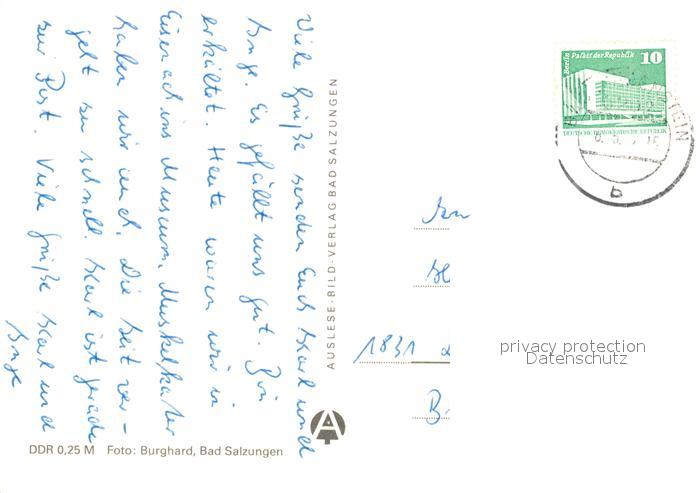 Viele Grüße senden Euch Karl und
Inge. Es gefällt uns gut. Bin
erkältet. Heute waren wir in
Eisenach ins Museum. Muskelkater
haben wir auch. Die Zeit ver-
geht zu schnell. Karl ist gerade
zur Post. Viele Grüße Karl und
Inge
AUSLESE-BILD-VERLAG BAD SALZUNGEN
DDR 0,25 M Foto: Burghard, Bad Salzungen
A
Berlin Palast der Republik 10
DEUTSCHE DEMOKRATISCHE REPUBLIK
b
1831
privacy protection
Datenschutz